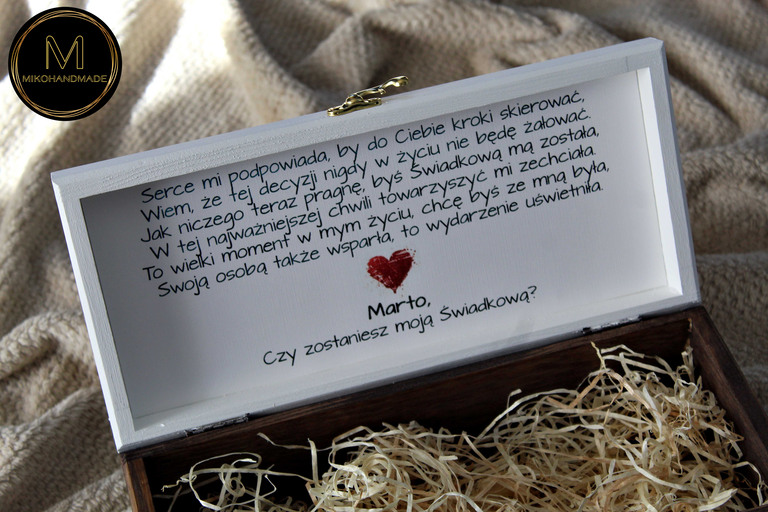 M
MIKOHANDMADE
Serce mi podpowiada, by do Ciebie kroki skierować,
Wiem, że tej decyzji nigdy w życiu nie będę żałować.
Jak niczego teraz pragnę, byś Świadkową mą została,
W tej najważniejszej chwili towarzyszyć mi zechciała.
To wielki moment w mym życiu, chcę byś ze mną była,
Swoją osobą także wsparła, to wydarzenie uświetniła.
Marto,
Czy zostaniesz moją Świadkową?